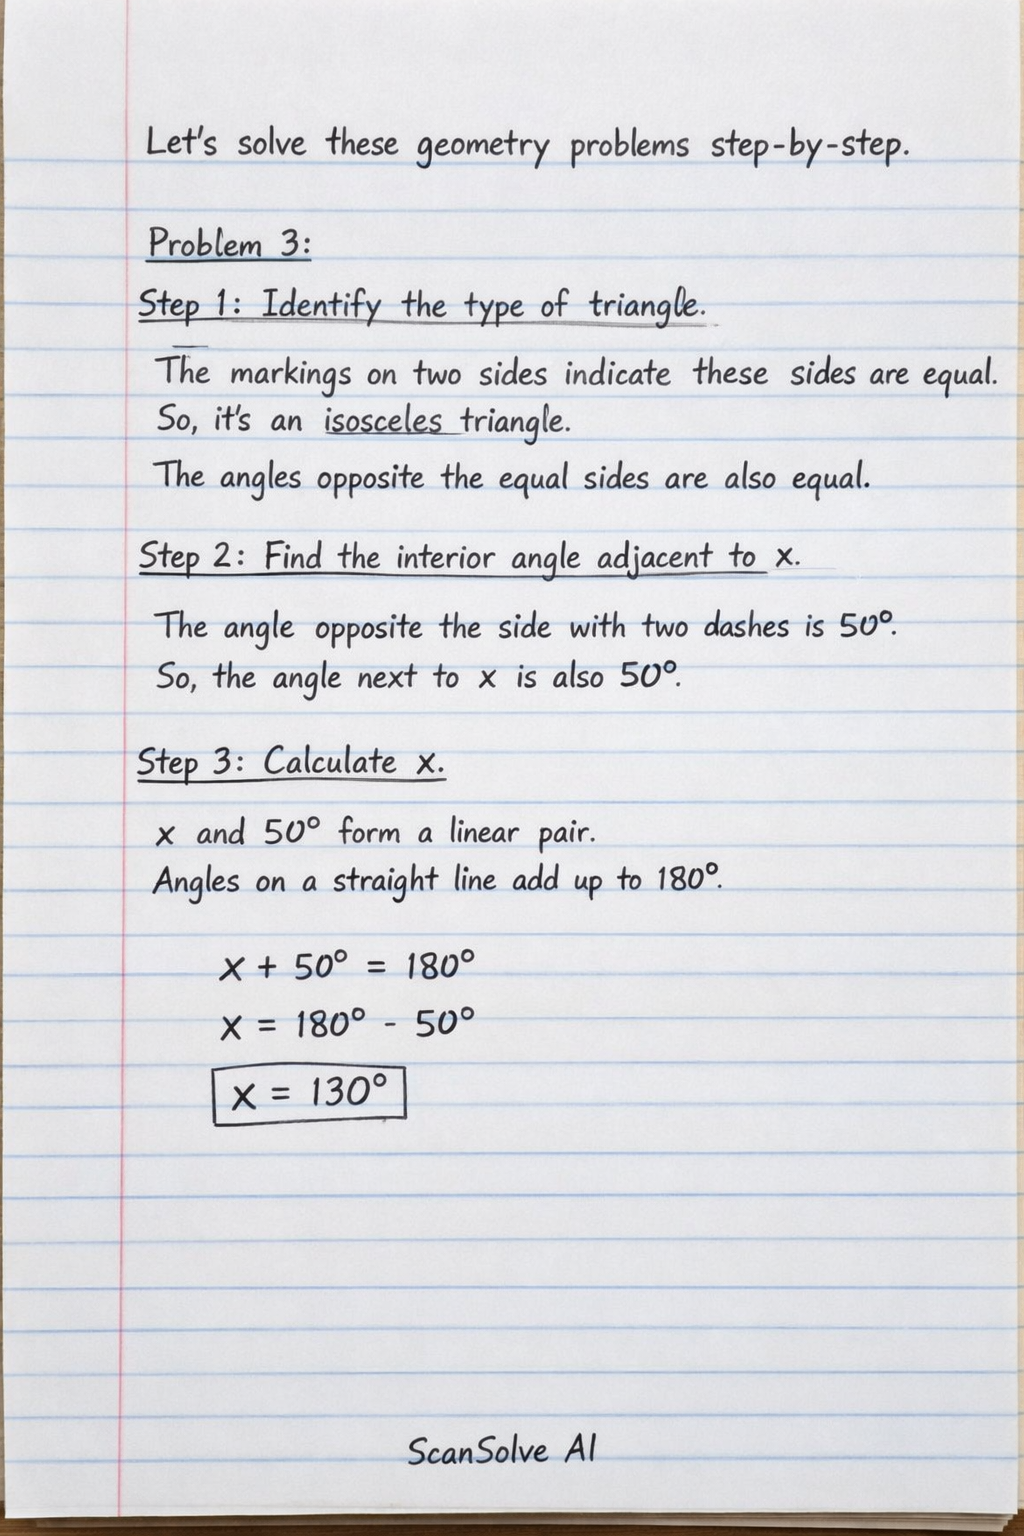 Let's solve these geometry problems step-by-step.
Problem 3:
Step 1: Identify the type of triangle.
The markings on two sides indicate these sides are equal.
So, it's an isosceles triangle.
The angles opposite the equal sides are also equal.
Step 2: Find the interior angle adjacent to x.
The angle opposite the side with two dashes is 50°.
So, the angle next to x is also 50°.
Step 3: Calculate x.
x and 50° form a linear pair.
Angles on a straight line add up to 180°.
x + 50° = 180°
x = 180° - 50°
x = 130°
ScanSolve AI